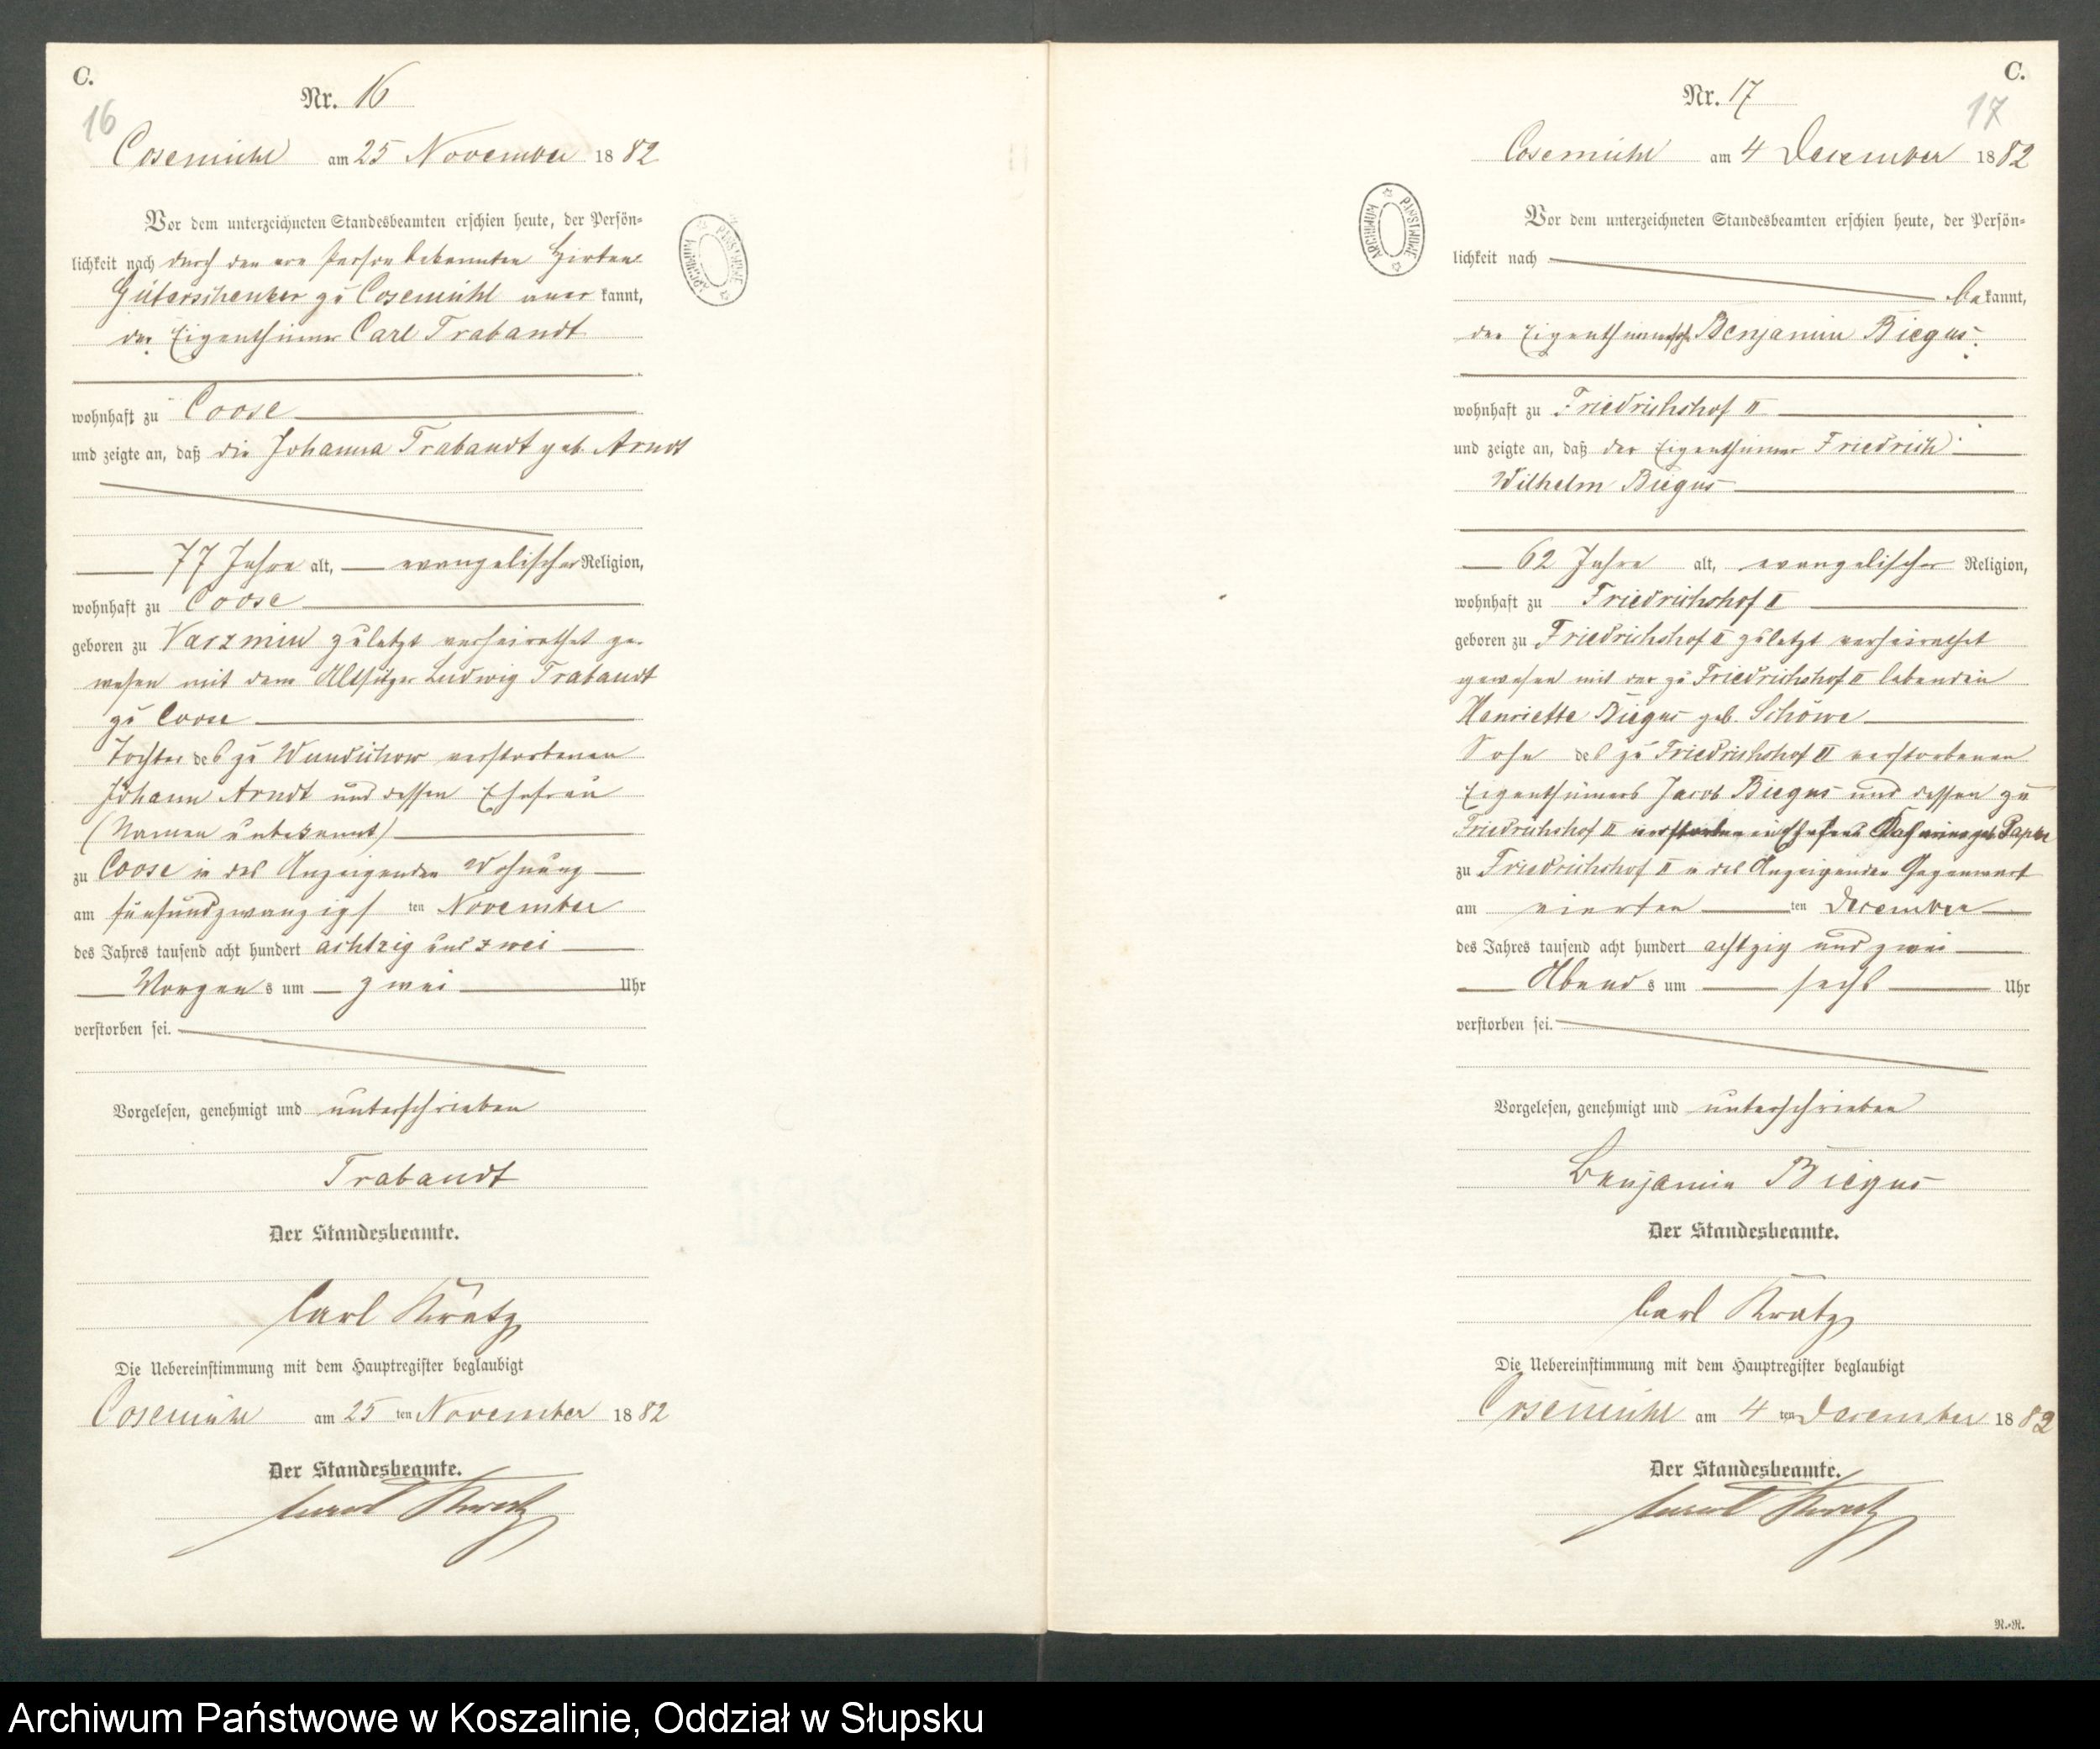 C.
16
Nr. 16
Cosemühl am 25 November 1882
Vor dem unterzeichneten Standesbeamten erschien heute, der Persön-
lichkeit nach durch den von Person bekannten Hirten
zu Cosemühl aner kannt,
der Eigenthümer Carl Trabandt
wohnhaft zu Coose
und zeigte an, daß die Johanna Trabandt geb. Arndt
77 Jahre alt, evangelischer Religion,
wohnhaft zu Coose
geboren zu Varzmin zuletzt verheirathet ge-
wesen mit dem Altsitzer Ludwig Trabandt
zu Coose
Tochter des zu Wundichow verstorbenen
Johann Arndt und dessen Ehefrau
(Namen unbekannt)
zu Coose in des Anzeigenden Wohnung
am fünfundzwanzigs ten November
des Jahres tausend acht hundert achtzig und zwei
Morgen s um zwei Uhr
verstorben sei.
Vorgelesen, genehmigt und unterschrieben
Trabandt
Der Standesbeamte.
Carl Kratz
Die Uebereinstimmung mit dem Hauptregister beglaubigt
Cosemühl am 25 ten November 1882
Der Standesbeamte.
Carl Kratz
C.
17
Nr. 17
Cosemühl am 4 December 1882
Vor dem unterzeichneten Standesbeamten erschien heute, der Persön-
lichkeit nach
be kannt,
der Benjamin Biegus.
wohnhaft zu Friedrichshof II
und zeigte an, daß der Eigenthümer Friedrich
Wilhelm Biegus
62 Jahre alt, evangelischer Religion,
wohnhaft zu Friedrichshof II
geboren zu Friedrichshof II zuletzt verheirathet
gewesen mit der zu Friedrichshof II lebenden
Henriette Biegus geb. Schöwe
Sohn des zu Friedrichshof II verstorbenen
Eigenthümers Jacob Biegus und dessen zu
Friedrichshof II verstorbenen Ehefrau geb. Paper
zu Friedrichshof II in des Anzeigenden Gegenwart
am vierten ten December
des Jahres tausend acht hundert achtzig und zwei
Abend s um sechs Uhr
verstorben sei.
Vorgelesen, genehmigt und unterschrieben
Benjamin Biegus
Der Standesbeamte.
Carl Kratz
Die Uebereinstimmung mit dem Hauptregister beglaubigt
Cosemühl am 4 ten December 1882
Der Standesbeamte.
Carl Kratz
R.-R.
ARCHIWUM PAŃSTWOWE
ARCHIWUM PAŃSTWOWE
Archiwum Państwowe w Koszalinie, Oddział w Słupsku